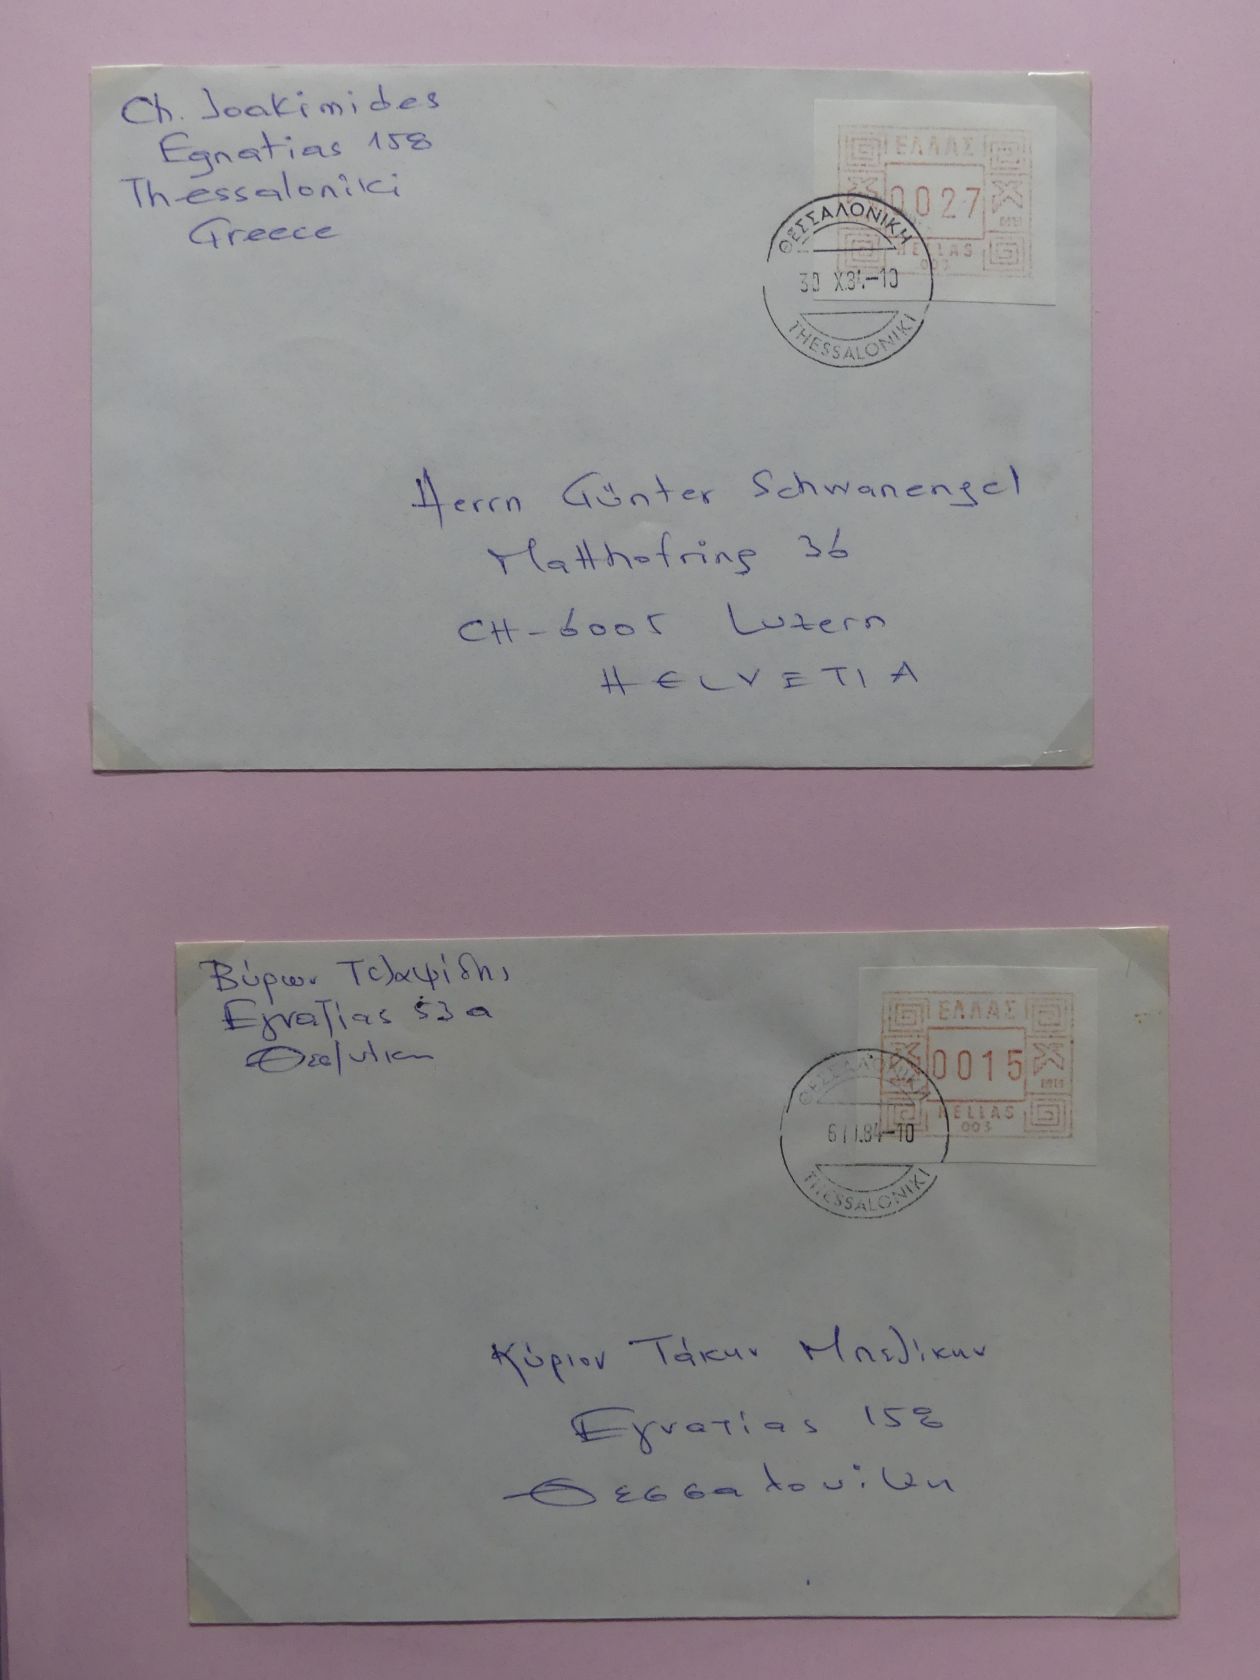 Ch. Joakimides
Egnatias 158
Thessaloniki
Greece
ΕΛΛΑΣ
0027
HELLAS
003
ΘΕΣΣΑΛΟΝΙΚΗ
30 X.84-10
THESSALONIKI
Herrn Günter Schwanengel
Matthofring 36
CH-6005 Luzern
HELVETIA
Βύρων Τελαψίδης
Εγνατίας 53 α
Θεσ/νίκη
ΕΛΛΑΣ
0015
HELLAS
003
ΘΕΣΣΑΛΟΝΙΚΗ
THESSALONIKI
Κύριον Τάκην Μπελίκην
Εγνατίας 158
Θεσσαλονίκη